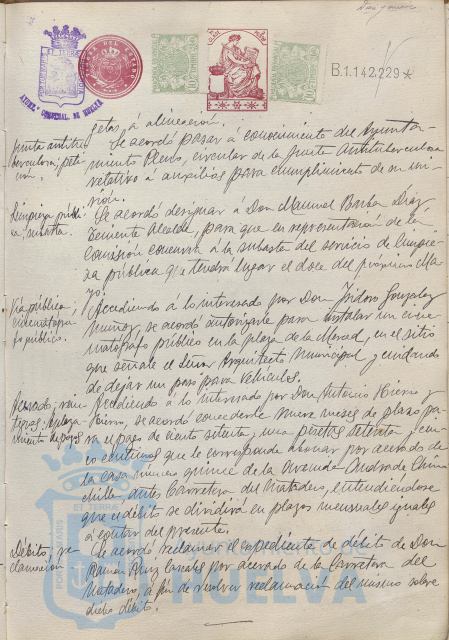 B.1.142.229*
AYUNT. PROVINCIAL DE HUELVA
getas á alineación.
Junta antitu-
berculosa, peti-
ción.
Se acordó pasar á conocimiento del Ayunta-
miento Pleno, circular de la Junta Antituberculosa
relativo a auxilios para cumplimiento de su mi-
sión.
Limpieza públi-
ca, subasta.
Se acordó designar á Don Manuel Barba Díaz
Teniente Alcalde, para que en representación de la
Comisión concurra á la subasta del servicio de limpie-
za pública que tendrá lugar el doce del próximo Ma-
yo.
Vía pública,
cinematógra-
fo público.
Accediendo á lo interesado por Don Isidoro González
Muñoz, se acordó autorizarle para instalar un cine-
matógrafo público en la plaza de la Merced, en el sitio
que señale el Señor Arquitecto Municipal y cuidando
de dejar un paso para vehículos.
Acerado, rein-
tegros,
miento de pagos
Accediendo á lo interesado por Don Antonio Hierro y
Hierro, se acordó concederle nueve meses de plazo pa-
ra el pago de ciento setenta, una pesetas setenta, cin-
co céntimos que le corresponde abonar por acerado de
la casa número quince de la Avenida Andrade Chin-
chilla, antes Carretera del Matadero, entendiéndose
que el débito se dividirá en plazos mensuales iguales
á contar del presente.
Débito, re-
clamación
Se acordó reclamar el expediente de débito de Don
Ramón Ruiz Canales por acerado de la Carretera del
Matadero, á fin de resolver reclamación del mismo sobre
dicho débito.
AYUNTAMIENTO DE
HUELVA